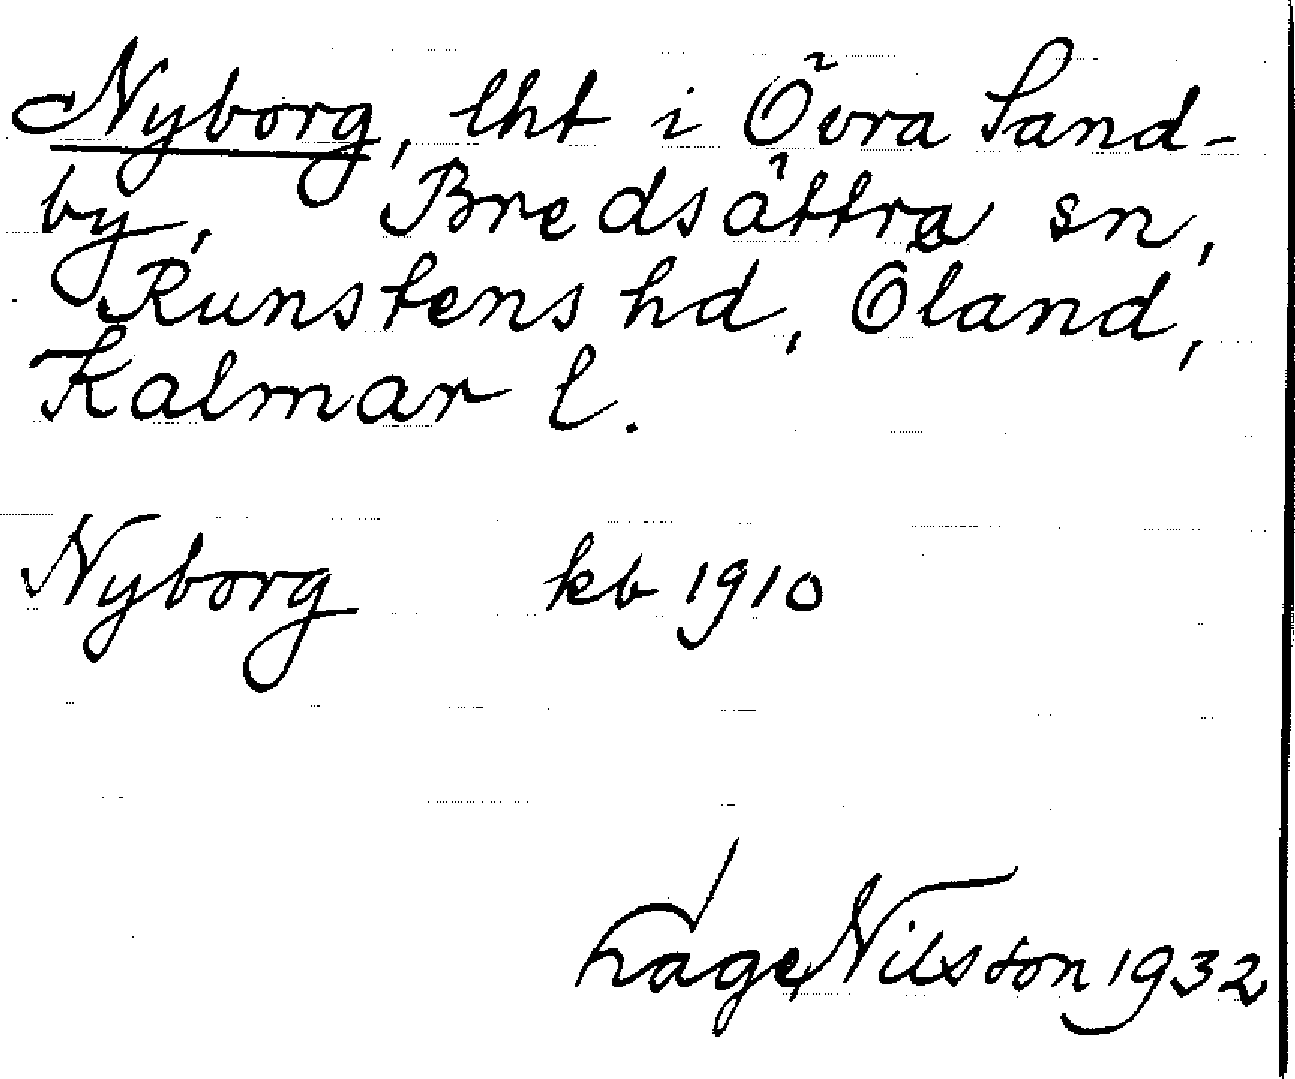 Nyborg, lht i Övra Sand-
by, Bredsättra sn,
Runstens hd, Öland,
Kalmar l.
Nyborg kb 1910
Nilsson 1932